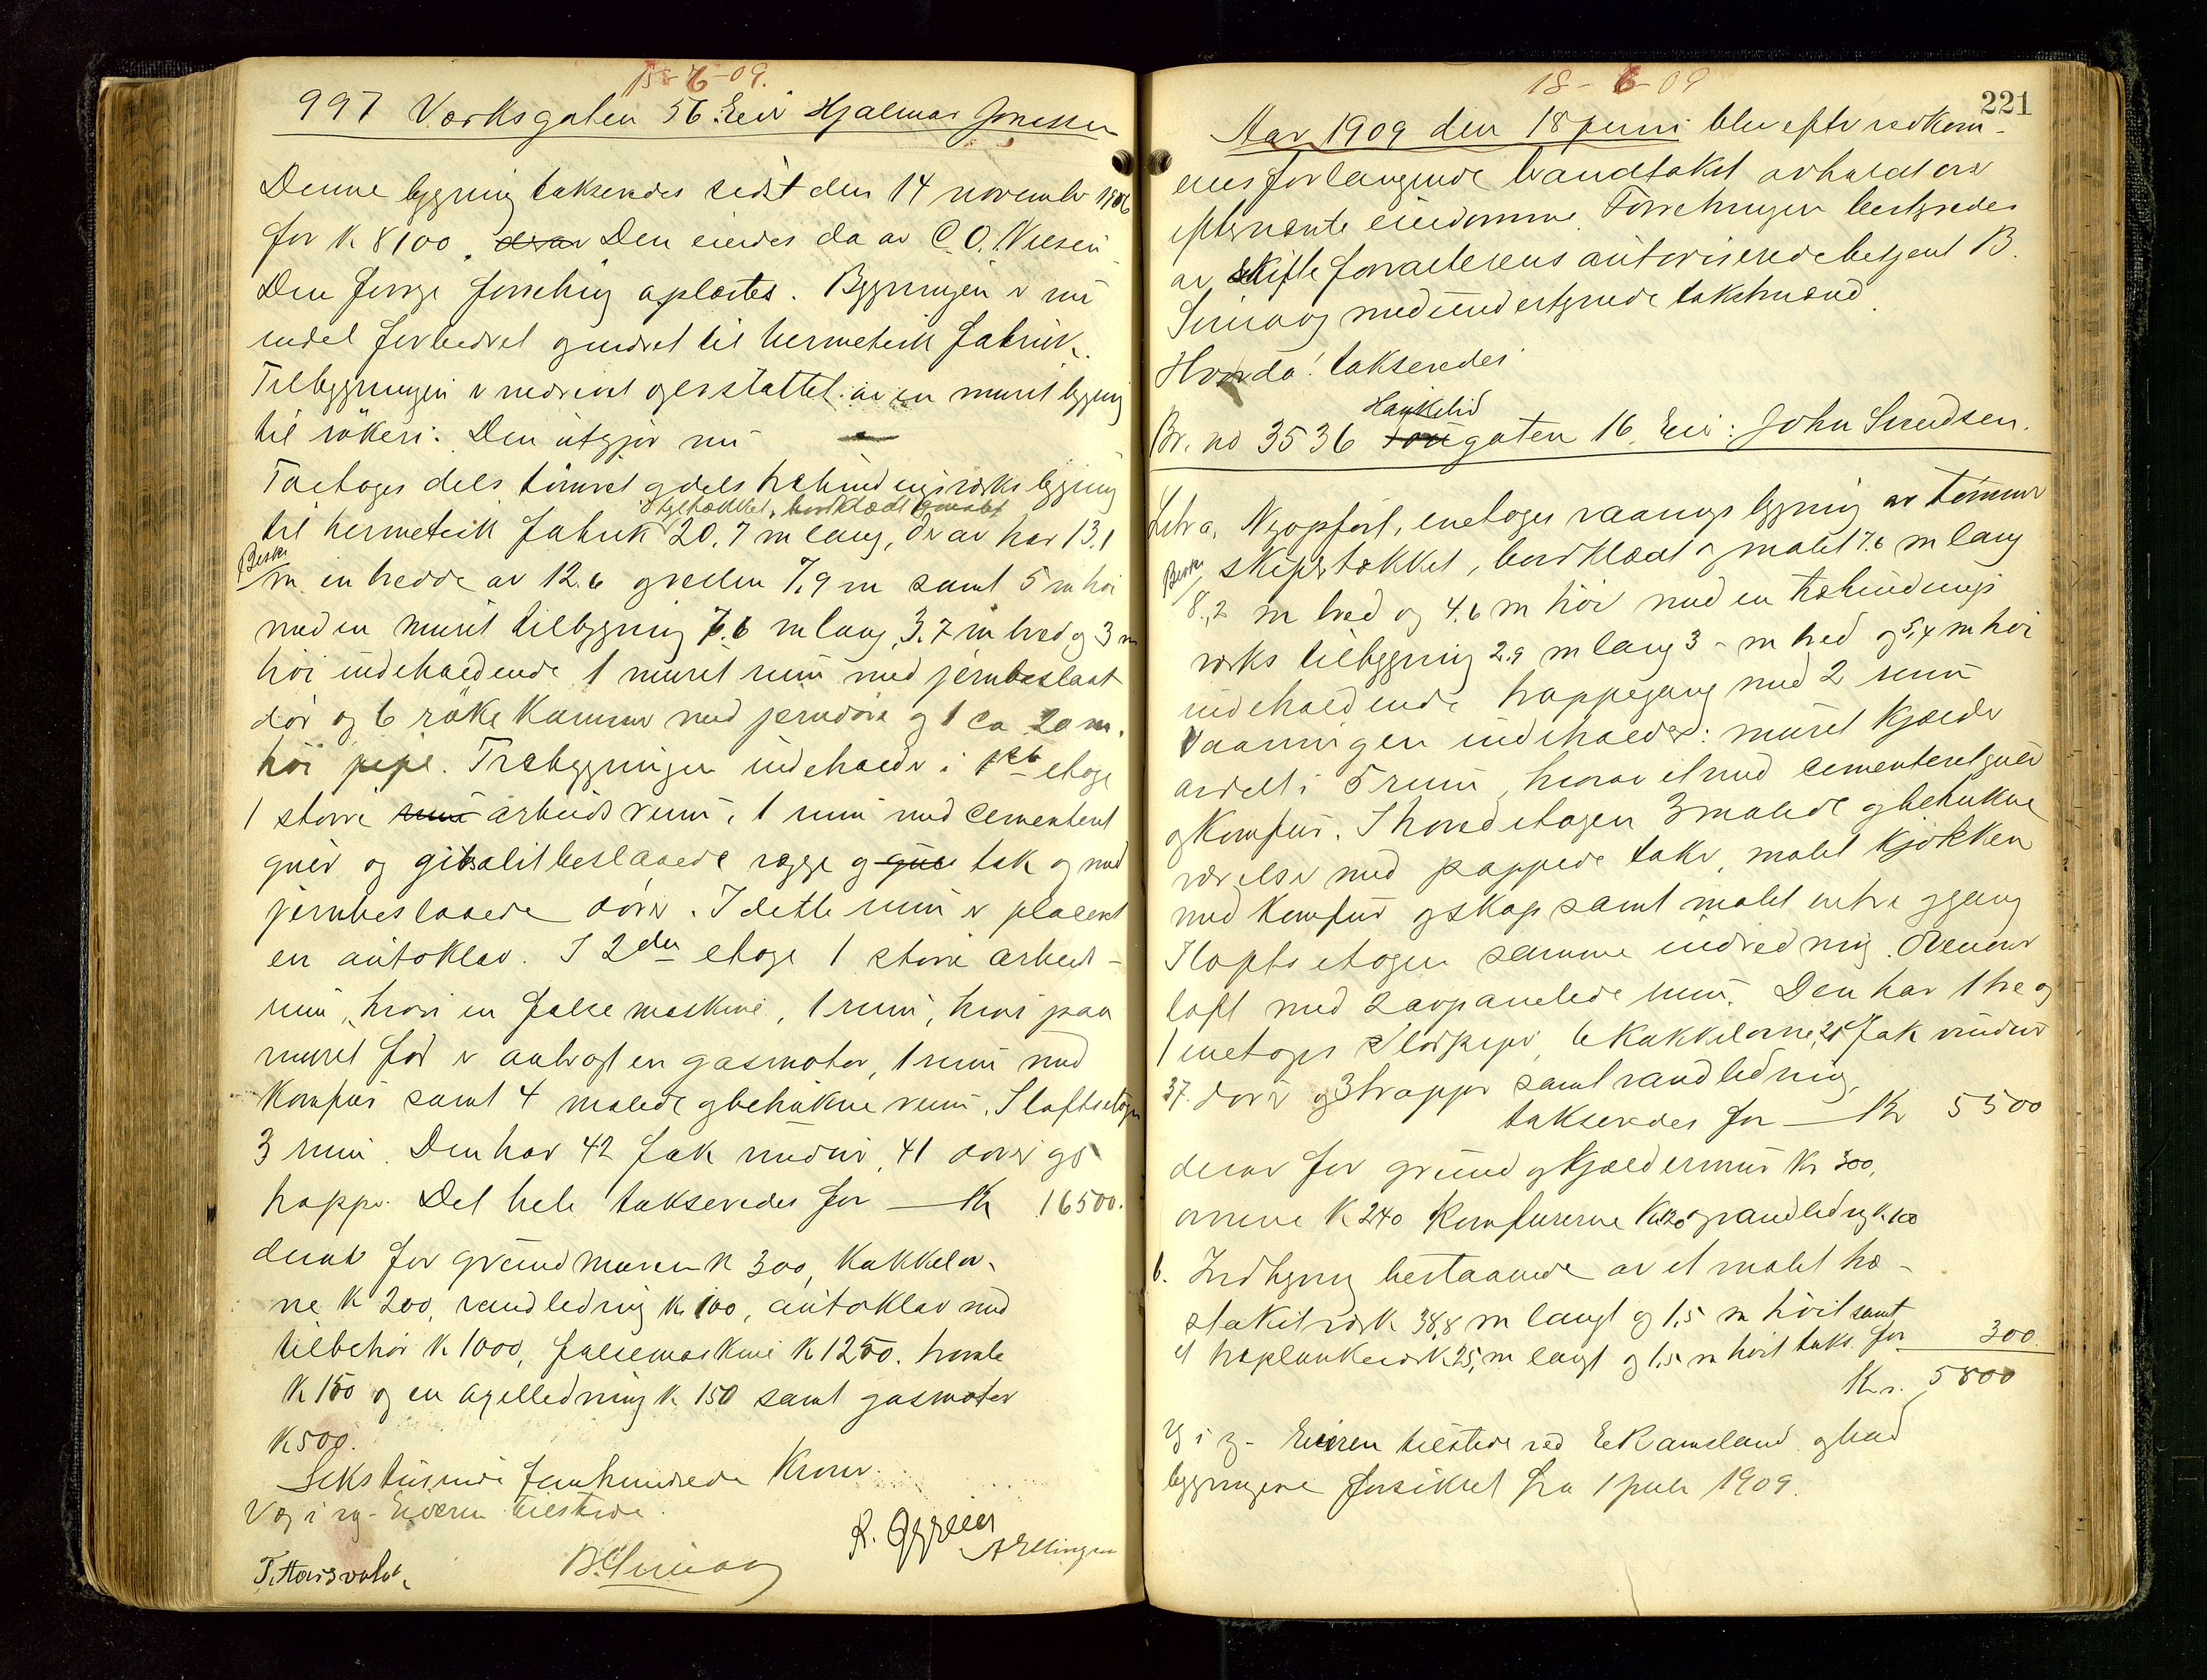 15-6-09.
997 Værksgaten 56. Eier Hjalmar Jonessen
Denne bygning takseredes sidst den 14 november 1906
for k 8100. Den eiedes da av C. O. Nilsen
Den forrige forretning oplæstes. Bygningen er nu
endel forbedret og indret til hermetisk fabrik.
Tilbygningen er nedrevet og erstattet av en muret bygning
til rökeri. Den utgjör nu
Toetages dels tömret og dels trebindingsverks bygning
skifertækket, bordklædt og malet
til hermetisk fabrik 20,7 m lang, derav har 13,1
Beskr
m en bredde av 12.6 og resten 7,9 m samt 5 m höi
med en muret tilbygning 7.6 m lang, 3.7 m bred og 3 m
höi indeholdende 1 muret rum med jernbeslaat
dör og 6 röke kammer med jerndöre og 1 ca 20 m.
höi pipe. Træbygningen indeholder i 1ste etage
1 större rum arbeidsrum, 1 rum med cementert
gulv og gibsolitbeslaaede vægge og gulv tak og med
jernbeslaaede dörer. I dette rum er placert
en autoklav. I 2den etage 1 större arbeids-
rum, hvori en false maskine, 1 rum, hvor paa
muret fot er anbragt en gasmotor, 1 rum med
komfur samt 4 malede og betrukne rum. I loftsetagen
3 rum. Den har 42 fak vinduer, 41 dörer og 5
trapper. Det hele takseredes for — Kr 16500.
derav for grundmuren k 300, kakkelov-
ne k 200, vandledning k 100, autoklav med
tilbehör k 1000, falsemaskine k 1250.
k 150 og en ledning k 150 samt gasmotor
k 500.
Sekstusinde femhundrede kroner.
V og i rg- Eieren tilstede.
B. Simony
R. Gjgreien
A Ellingsen
18-6-09
221
Aar 1909 den 18 juni blev efter vedkom-
enes forlangende brandtakst avholdt over
efternævnte eiendomme. Forretningen bestyredes
av skifteforvalterens autoriserede betjent B.
Simony med undertegnede takstmænd
Hvorda! takseredes
Haukelid
Br. no 3536 gaten 16. Eier: John Svendsen.
Litr a. Nyopfört, enetages vaanings bygning av tömmer
Beskr
skifertækket, bordklædt og malet 7.6 m lang
8.,2 m bred og 4.6 m höi med en træbindings
verks tilbygning 2.9 m lang 3 - m bred og 5,4 m höi
indeholdende trappegang med 2 rum
Vaaningen indeholder: muret kjælder
avdelt i 5 rum, hvorav et med cementeret gulv
og komfur. I hovedetagen 3 malede og betrukne
værelser med pappede taker, malet kjökken
med komfur og skap samt malet entre og gang
I loftsetagen samme indredning. Övenover
loft med 2 avpanelede rum. Den har 1 tre og
1 enetages pipe, 6 kakkelovne, 28 fak vinduer
37. dörer og 3 trapper samt vandledning,
takseredes for — Kr 5500
derav for grund og kjældermur Kr 300,
ovnene k 240 komfurerne k 120 og vandledning k 100
b. Indhegning bestaaende av et malet træ-
stakitverk 38,8 m langt og 1,5 m höit samt
et træplankeverk 25, m langt og 1,5 m höit taks. for 300
Kr. 5800
V g i g- Eieren tilstede ved E. Ramsland og bad
bygningene forsikret fra 1 juli 1909.